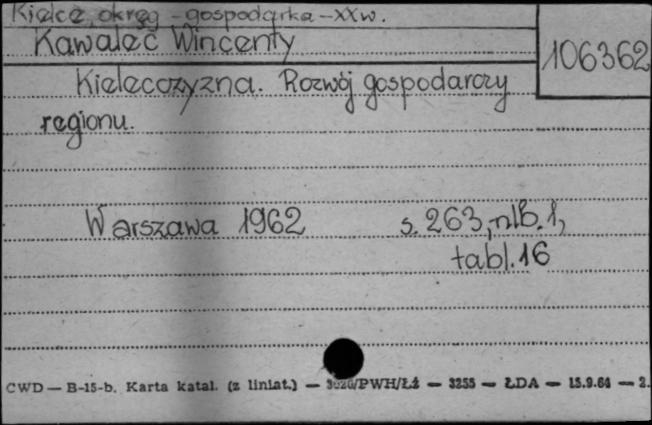 Kielce, okręg - gospodarka - XX w.
Kawalec Wincenty
106362
Kielecczyzna. Rozwój gospodarczy
regionu.
Warszawa 1962 s. 263, nlb. 1,
tabl. 16
CWD — B-15-b. Karta katal. (z liniat.) — /PWH/Łź — 3255 — ŁDA — 15.9.64 — 2.